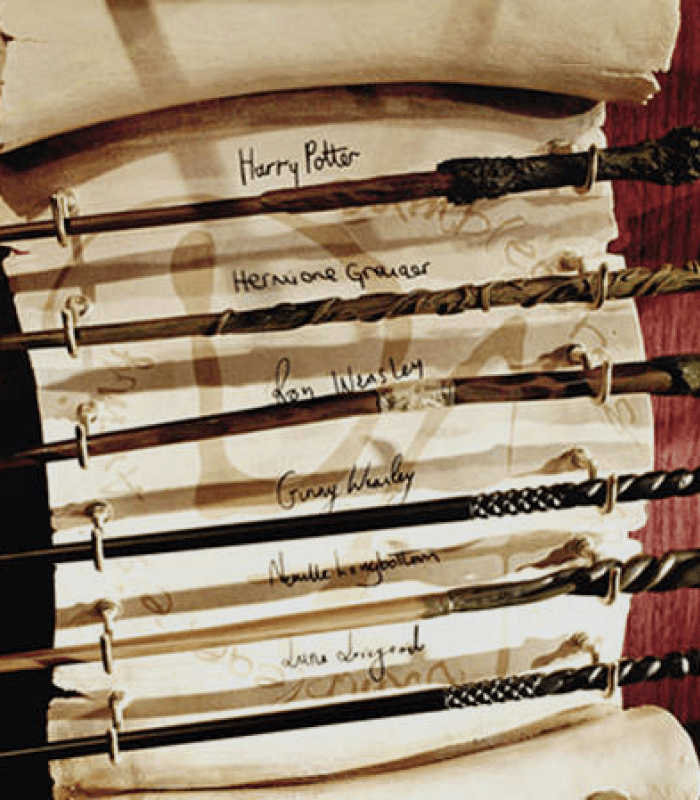 Harry Potter
Hermione Granger
Ron Weasley
Ginny Weasley
Neville Longbottom
Luna Lovegood